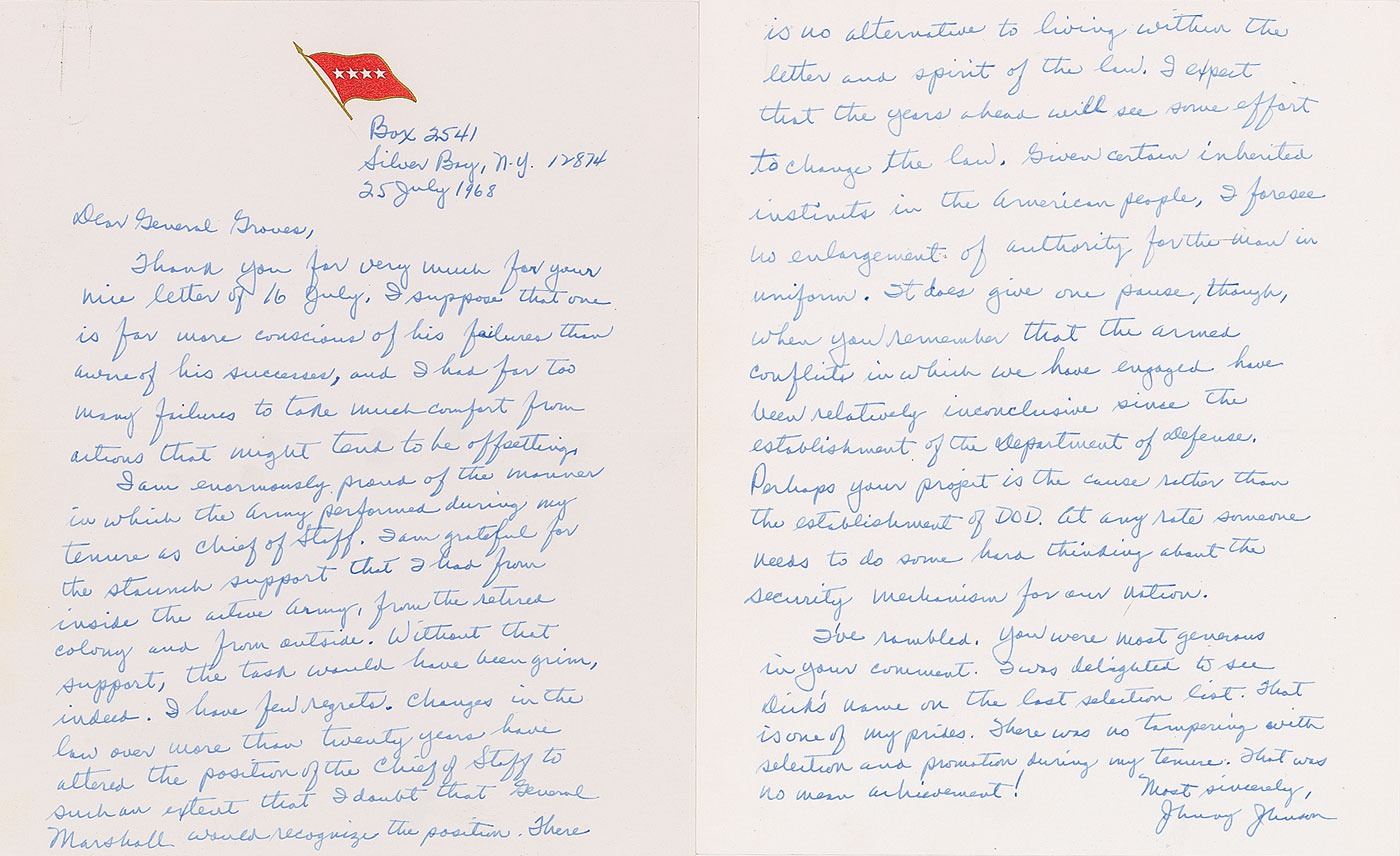 Box 2541
Silver Bay, N.Y. 12874
25 July 1968
Dear General Groves,
Thank you for very much for your
nice letter of 16 July. I suppose that one
is far more conscious of his failures than
aware of his successes, and I had far too
many failures to take much comfort from
actions that might tend to be offsetting.
I am enormously proud of the manner
in which the Army performed during my
tenure as Chief of Staff. I am grateful for
the staunch support that I had from
inside the active Army, from the retired
colony and from outside. Without that
support, the task would have been grim,
indeed. I have few regrets. Changes in the
law over more than twenty years have
altered the position of the Chief of Staff to
such an extent that I doubt that General
Marshall would recognize the position. There
is no alternative to living within the
letter and spirit of the law. I expect
that the years ahead will see some effort
to change the law. Given certain inherited
instincts in the American people, I foresee
no enlargement of authority for the man in
uniform. It does give one pause, though,
when you remember that the armed
conflicts in which we have engaged have
been relatively inconclusive since the
establishment of the Department of Defense.
Perhaps your project is the cause rather than
the establishment of DOD. At any rate someone
needs to do some hard thinking about the
security mechanism for our nation.
I've rambled. You were most generous
in your comment. I was delighted to see
Dick's name on the last selection list. That
is one of my prides. There was no tampering with
selection and promotion during my tenure. That was
no mean achievement!
Most sincerely,
Johnny Johnson